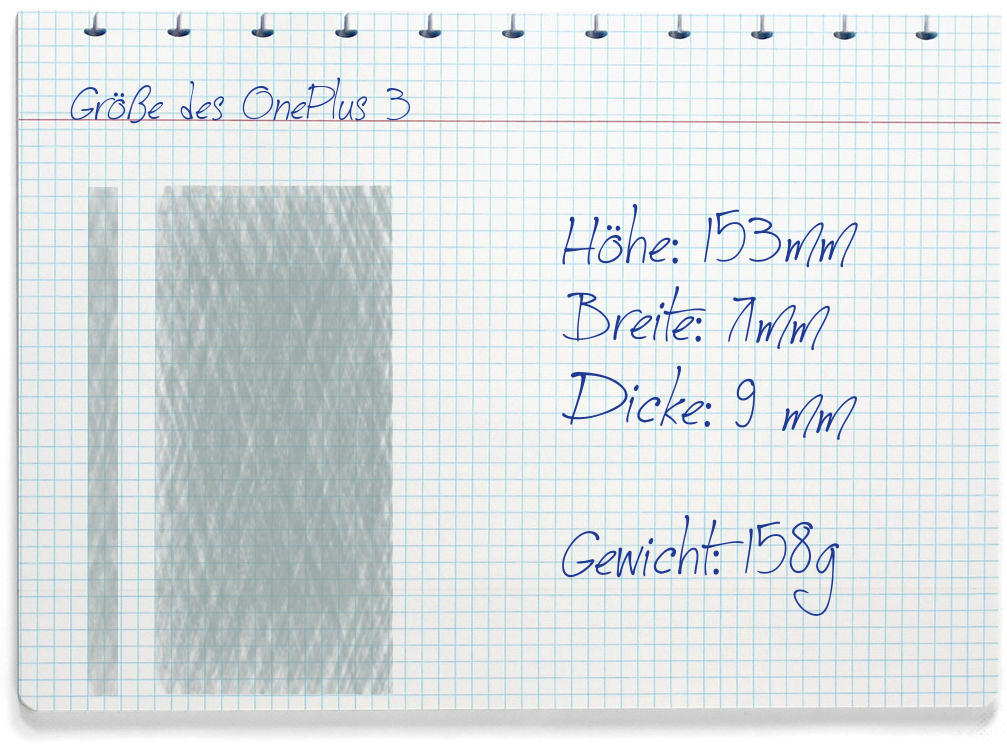 Größe des OnePlus 3
Höhe: 153mm
Breite: 71mm
Dicke: 9 mm
Gewicht: 158g